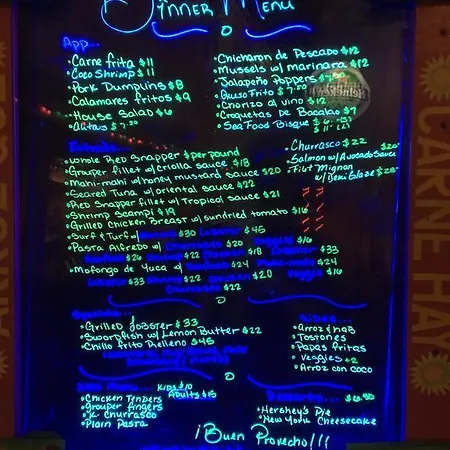 Dinner Menu
App...
• Carne frita $11
• Coco Shrimp $11
• Pork Dumplins $8
• Calamares fritos $9
• House Salad $6
• Alitas $7.50
• Chicharon de Pescado $12
• Mussels w/ marinara $12
• Jalapeño Poppers $7.50
• Queso Frito $7.50
• Chorizo al vino $12
• Croquetas de Bacalao $7
• Sea Food Bisque
Entrees...
• Whole Red Snapper $per pound
• Grouper fillet w/ criolla sauce $18
• Mahi-mahi w/ honey mustard sauce $20
• Seared Tuna w/ oriental sauce $22
• Red Snapper fillet w/ Tropical sauce $21
• Shrimp scampi $19
• Grilled Chicken Breast w/ sundried tomato $16
• Surf & Turf w/ $30 Lobster $45
• Pasta Alfredo w/ Churrasco $20 Veggies $16
Seafood $26 Shrimp $22 Lobster $33
• Mofongo de Yuca w/ Seafood $24 $24
Lobster $33 Shrimp $22 Chicken $20 Veggie $16
Churrasco $22
• Churrasco $22
• Salmon w/ Avocado Sauce $20
• Filet Mignon w/ Demi Glaze $28
Specials...
• Grilled Lobster $33
• Swordfish w/ Lemon Butter $22
• Chillo frito Relleno $45
Sides...
• Arroz & hab
• Tostones
• Papas fritas
• Veggies +2
• Arroz con coco
Kids Menu... Kids $10
Adults $15
• Chicken Tenders
• Grouper fingers
• K. Churrasco
• Plain Pasta
Desserts... $6.50
• Hershey's Pie
• New York Cheesecake
¡Buen Provecho!!!
CARNE HAY